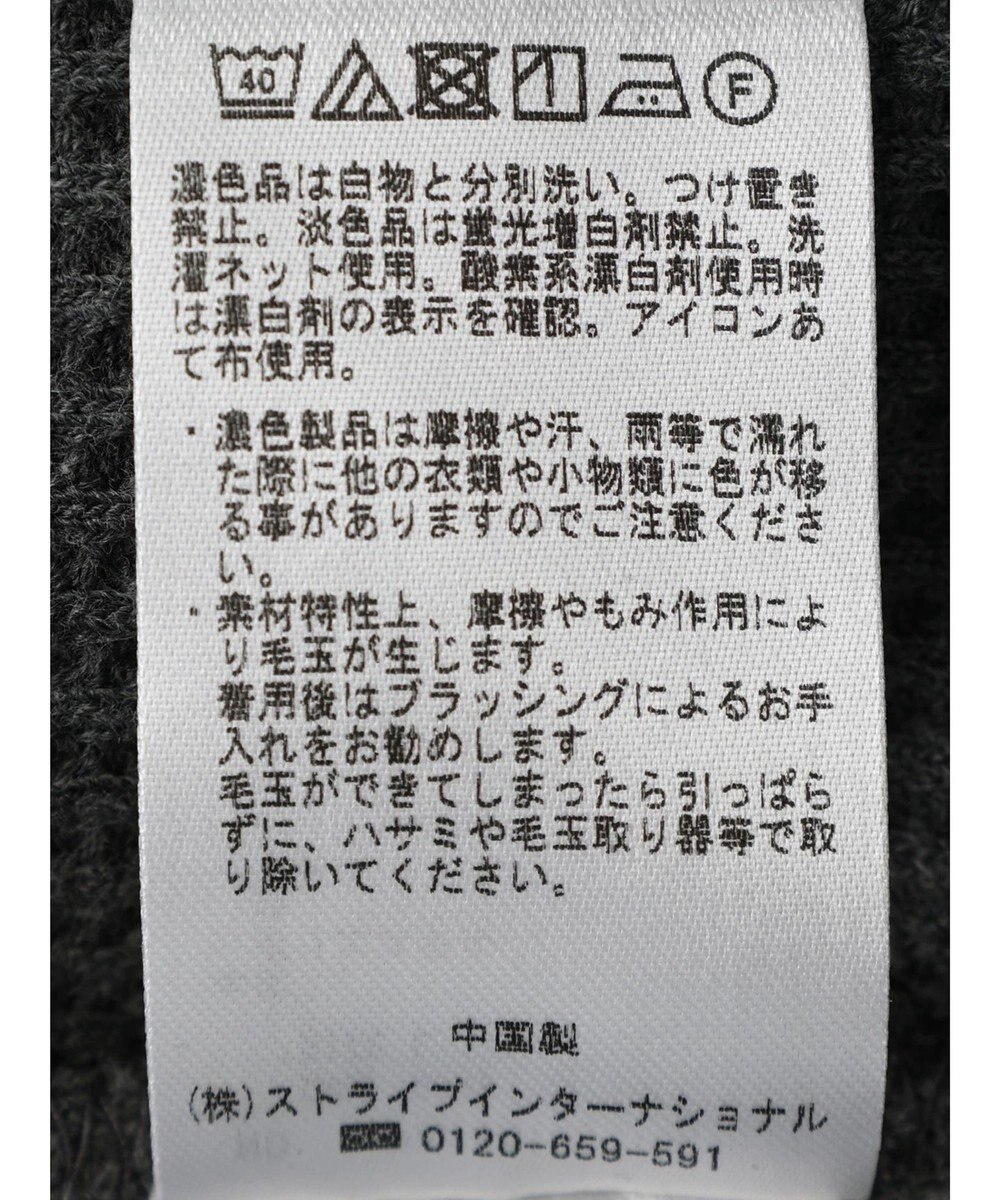 40
F
濃色品は白物と分別洗い。つけ置き
禁止。淡色品は蛍光増白剤禁止。洗
濯ネット使用。酸素系漂白剤使用時
は漂白剤の表示を確認。アイコンあ
て布使用。
・濃色製品は摩擦や汗、雨等で濡れ
た際に他の衣類や小物類に色が移
る事がありますのでご注意くださ
い。
・素材特性上、摩擦やもみ作用によ
り毛玉が生じます。
着用後はブラッシングによるお手
入れをお勧めします。
毛玉ができてしまったら引っぱら
ずに、ハサミや毛玉取り器等で取
り除いてください。
中国製
(株)ストライプインターナショナル
0120-659-591